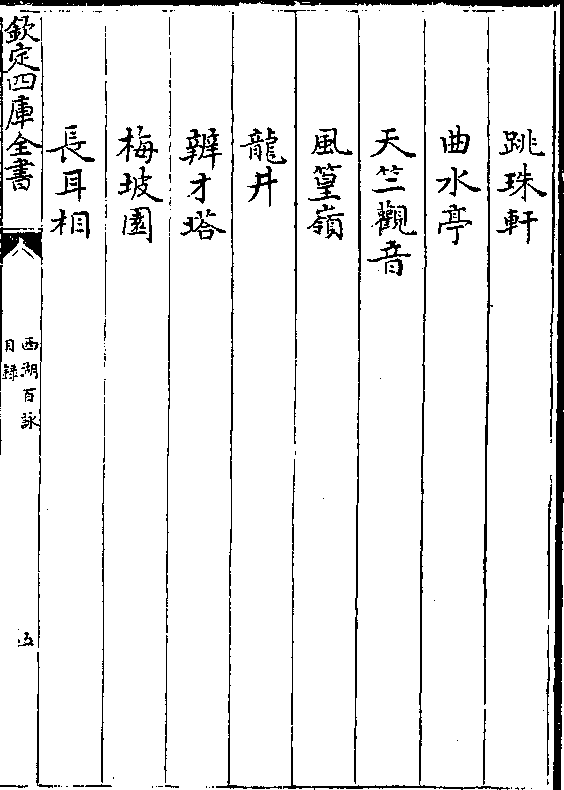 跳珠軒
曲水亭
天竺觀音
風篁嶺
龍井
辨才塔
梅坡園
長耳相
欽定四庫全書
西湖百詠
目錄
五